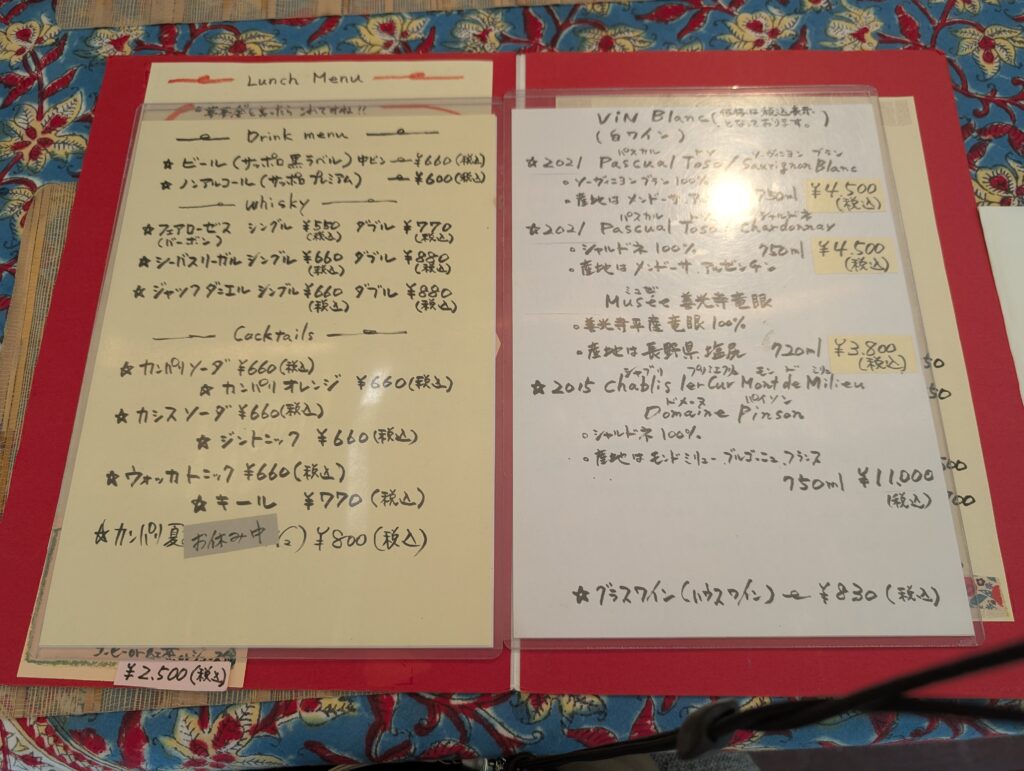 Lunch Menu
Drink menu
☆ ビール (サッポロ黒ラベル) 中ビン ¥660 (税込)
☆ ノンアルコール (サッポロ プレミアム) ¥600 (税込)
Whisky
☆ フェアローゼス シングル ¥550 (税込) ダブル ¥770 (税込)
(バーボン)
☆ シーバスリーガル シングル ¥660 (税込) ダブル ¥880 (税込)
☆ ジャックダニエル シングル ¥660 (税込) ダブル ¥880 (税込)
Cocktails
☆ カンパリソーダ ¥660 (税込)
☆ カンパリ オレンジ ¥660 (税込)
☆ カシスソーダ ¥660 (税込)
☆ ジントニック ¥660 (税込)
☆ ウォッカトニック ¥660 (税込)
☆ キール ¥770 (税込)
☆ カンパリ夏 お休み中 ¥800 (税込)
¥2.500 (税込)
ViN Blanc (価格は税込表示となっております。)
(白ワイン)
パスカル トソ ソーヴィニヨン ブラン
☆ 2021 Pascual Toso / Sauvignon Blanc
○ ソーヴィニヨンブラン 100%
○ 産地は メンドーサ 750ml ¥4.500 (税込)
パスカル トソ シャルドネ
☆ 2021 Pascual Toso Chardonnay
○ シャルドネ 100% 750ml ¥4.500 (税込)
○ 産地は メンドーサ アルゼンチン
ミュゼ
Musée 善光寺竜眼
○ 善光寺平産竜眼 100%
○ 産地は 長野県 塩尻 720ml ¥3.800 (税込)
シャブリ プルミエクリュ モン ド ミリュ
☆ 2015 Chablis 1er Cur Mont de Milieu
ドメーヌ パイソン
Domaine Pinson
○ シャルドネ 100%
○ 産地は モンドミリュー ブルゴーニュ フランス
750ml ¥11.000 (税込)
☆ グラスワイン (ハウスワイン) ¥830 (税込)
50
50
500
700